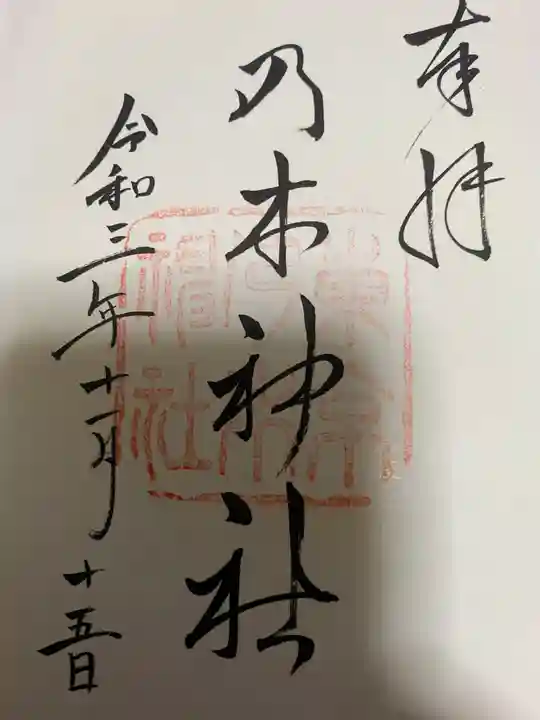 奉拝
乃木神社
令和三年十一月十五日
東京乃木神社